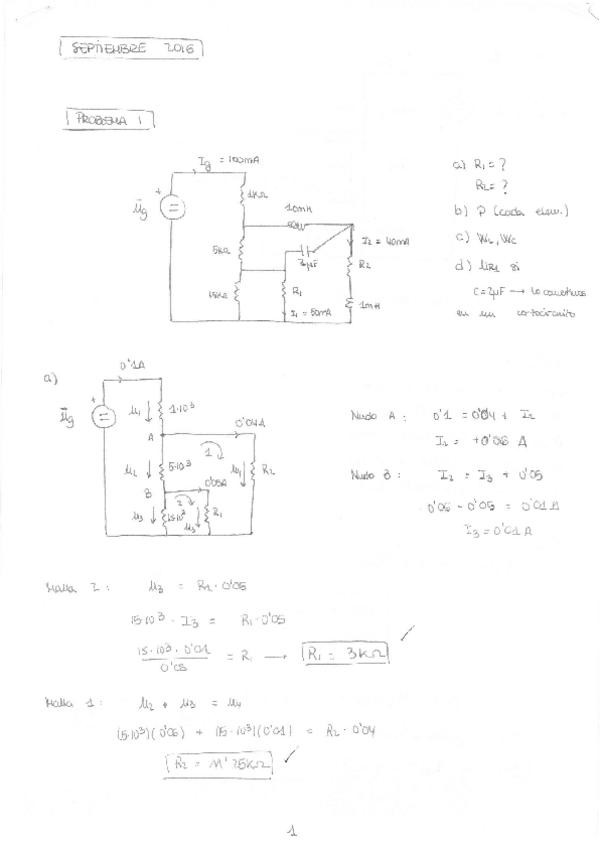 SEPTIEMBRE 2016
PROBLEMA 1
Ig = 100mA
1KΩ
Ūg
+
10mH
5KΩ
2μF
I2 = 40mA
R2
15KΩ
R1
I1 = 50mA
1mH
a) R1 = ?
R2 = ?
b) P (cada elem.)
c) WL, WC
d) URL si
C = 2μF → lo
en un cortocircuito
a)
0'1A
+
Ūg
U1
1·10³
A
0'04A
U2
5·10³
1
U4
R2
B
0'05A
U3
15·10³
2
U3
R1
Nudo A: 0'1 = 0'04 + I2
I2 = +0'06 A
Nudo B: I2 = I3 + 0'05
0'06 - 0'05 = 0'01 A
I3 = 0'01 A
Malla 2: U3 = R2 · 0'05
15·10³ · I3 = R1 · 0'05
15·10³ · 0'01 / 0'05 = R1 → R1 = 3KΩ ✓
Malla 1: U2 + U3 = U4
(5·10³)(0'06) + (15·10³)(0'01) = R2 · 0'04
R2 = 11'25KΩ ✓
1